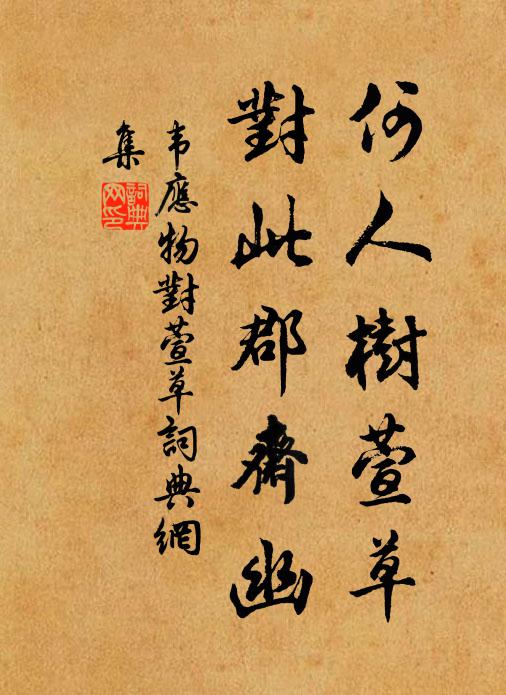 何人樹萱草
對此郡齋幽
韦應物對萱草詞典網
集
詞典
网印